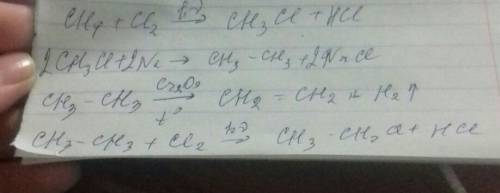 CH₄ + Cl₂ —hν→ CH₃Cl + HCl
2CH₃Cl + 2Na → CH₃ - CH₃ + 2NaCl
CH₃ - CH₃ —Cr₂O₃, t°→ CH₂ = CH₂ + H₂↑
CH₃ - CH₃ + Cl₂ —hν→ CH₃ - CH₂Cl + HCl